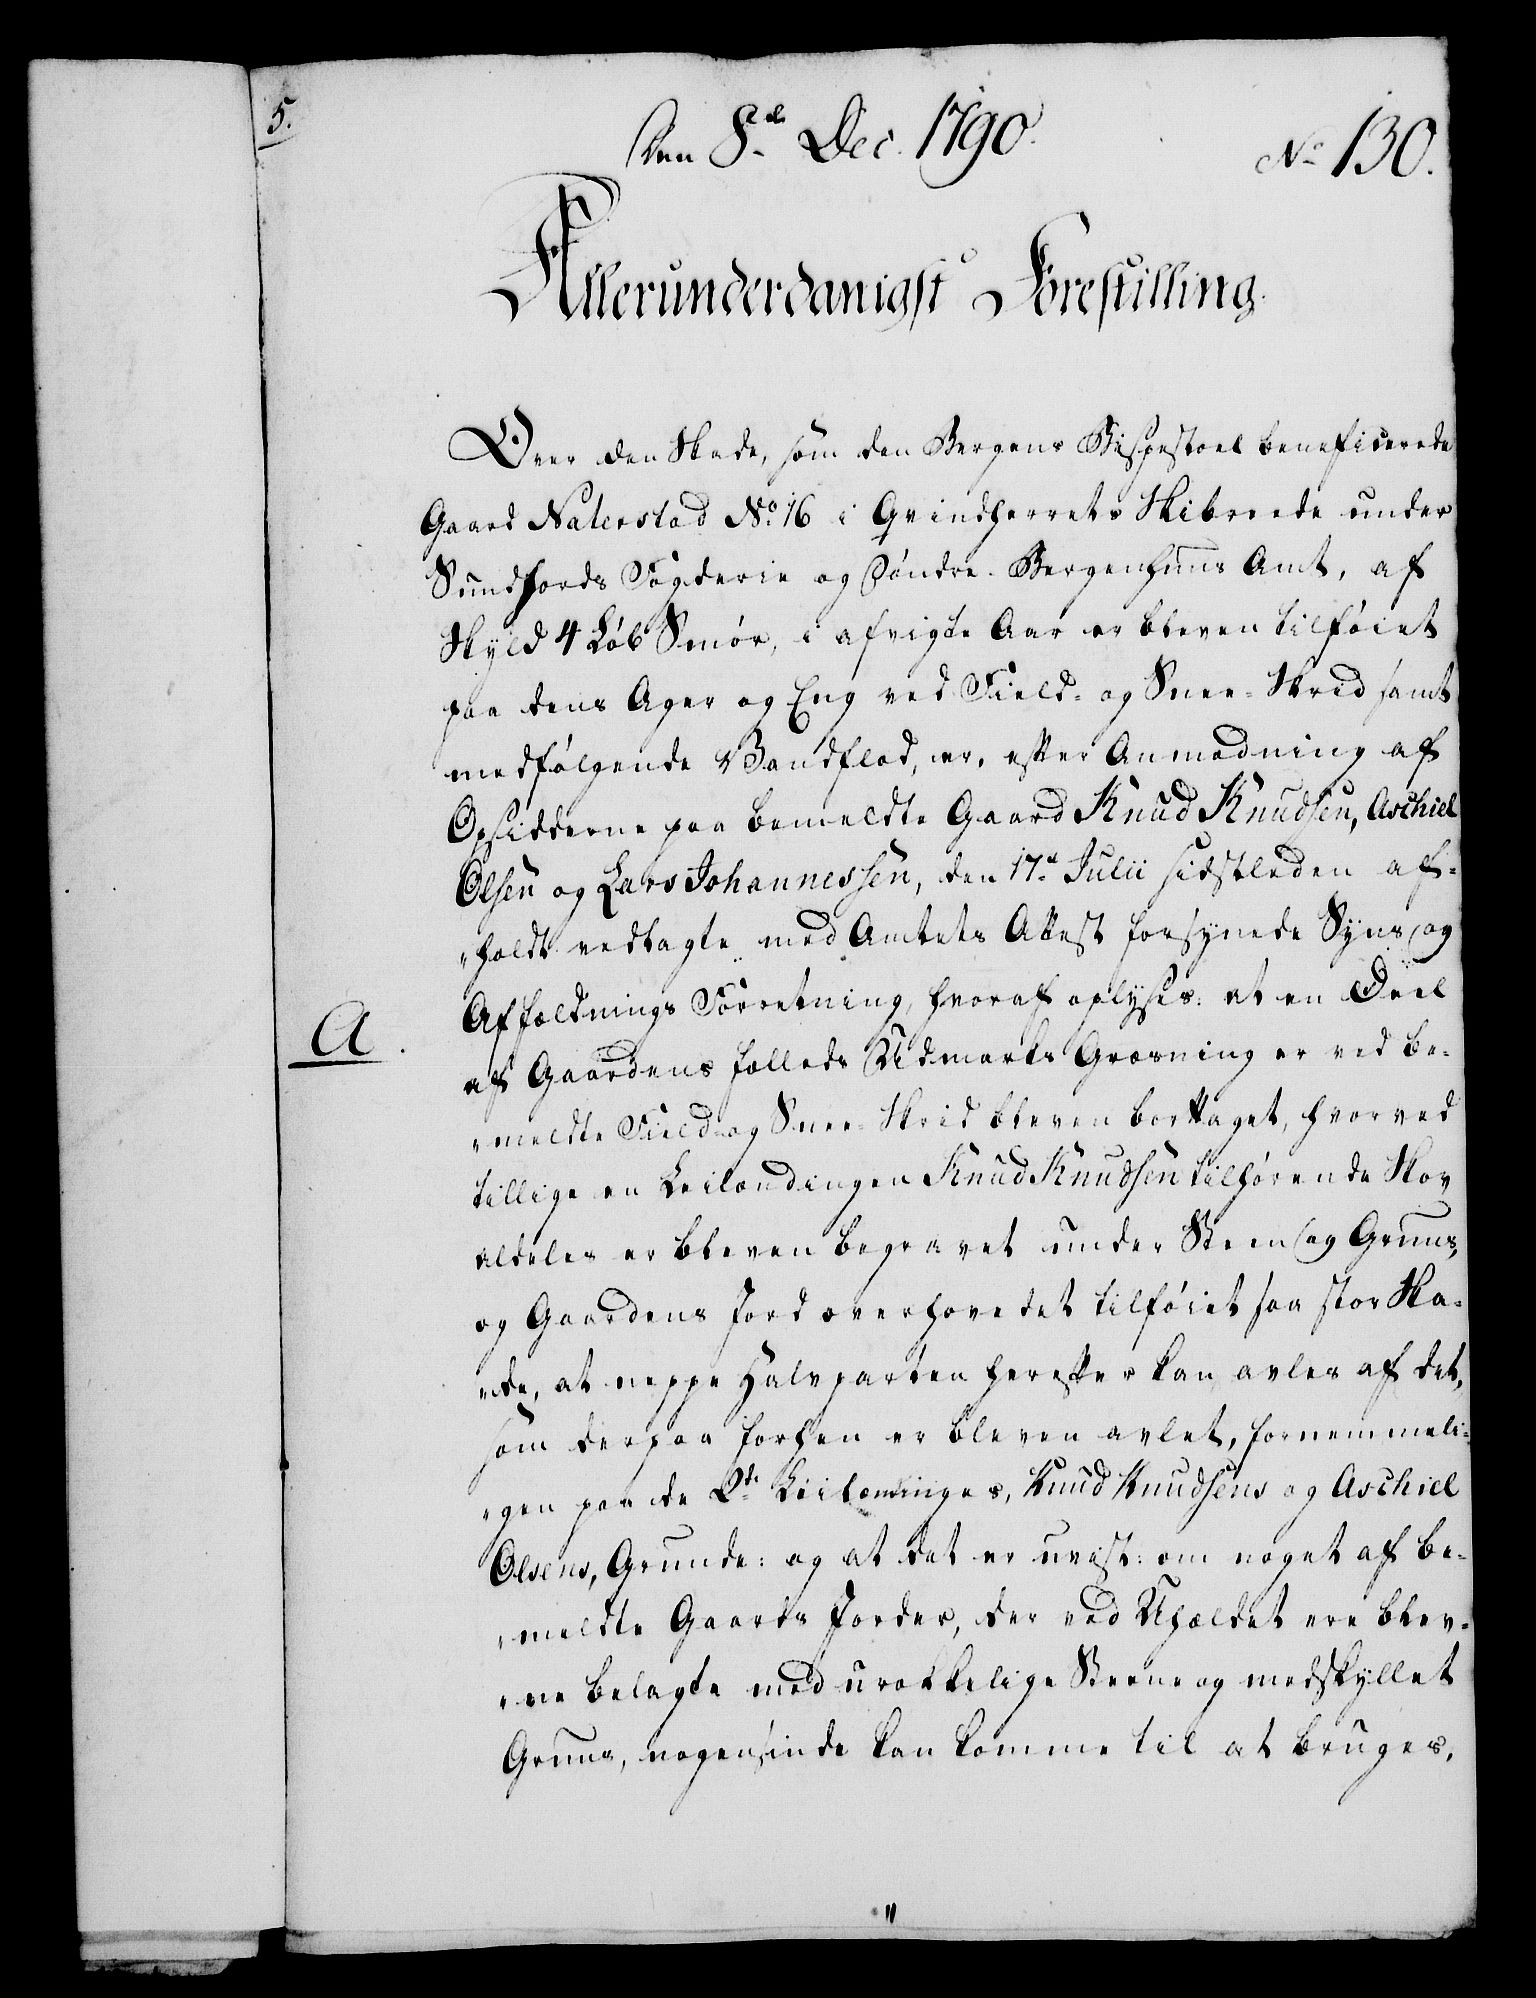 5.
Den 8de Dec. 1790.
No 130.
Allerunderdanigst Forestilling.
Over den Skade, som den Bergens Bispestoel beneficerede
Gaard Naterstad No. 16 i Qvindherrets Skibreede under
Sundhords Fogderie og Søndre-Bergenhuus Amt, af
Skyld 4 Løb Smør, i afvigte Aar er bleven tilføiet
paa dens Ager og Eng ved Field- og Snee-Skred samt
medfølgende Vandflod, er, efter Anmodning af
Opsidderne paa bemeldte Gaard Knud Knudsen, Aschiel
Olsen og Lars Johannessen, den 17de Julii sidstleden af-
"holdt vedtagte med Amtets Attest forsynede Syns og
Affældnings Forretning, hvoraf oplyses: at en Deel
A.
af Gaardens fælleds Udmarks Græsning er ved be-
"meldte Field- og Snee-Skrid bleven borttaget, hvorved
tillige en Leilændingen Knud Knudsen tilhørende Skov
aldeles er bleven begravet under Steen og Gruus,
og Gaardens Jord overhovedet tilføiet saa stor Ska-
"de, at neppe Halvparten herefter kan avles af det,
som derpaa forhen er bleven avlet, fornemmeli-
"gen paa de 2de Leilændinges, Knud Knudsens og Aschiel
Olsens, Grunde: og at det er uvist: om noget af be-
"meldte Gaards Jorder, der ved Uheldet ere blev-
"ne belagte med urokkelige Steene og medskyllet
Gruus, nogensinde kan komme til at bruges,
"